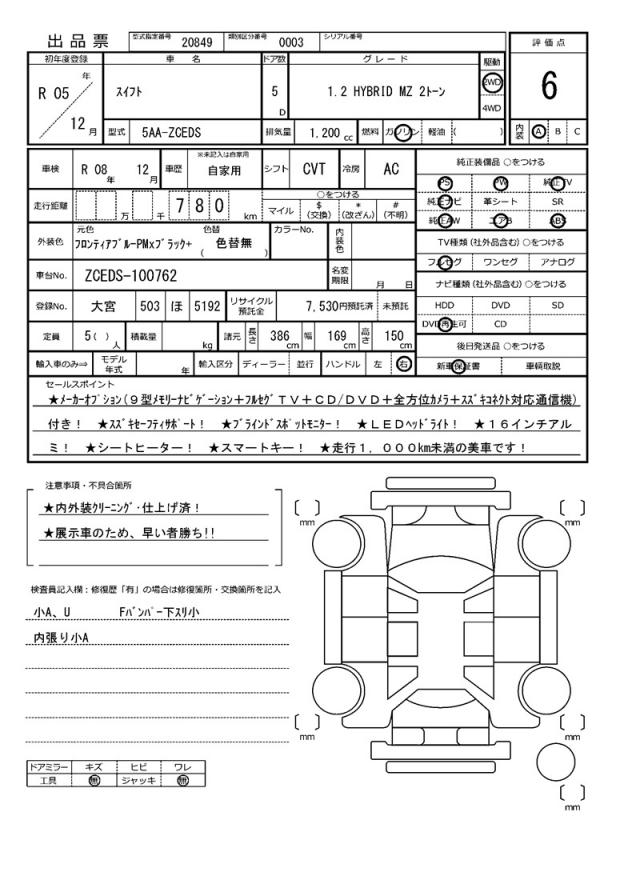 出品票 型式指定番号 20849 類別区分番号 0003 シリアル番号
評価点
6
内装 A B C
初年度登録 車名 ドア数 グレード 駆動
R 05 年 12 月 スイフト 5 D 1.2 HYBRID MZ 2トーン 2WD 4WD
型式 5AA-ZCEDS 排気量 1,200 cc 燃料 ガソリン 軽油 ( )
車検 R 08 年 12 月 車歴 ※未記入は自家用 自家用 シフト CVT 冷房 AC
走行距離 万 千 7 8 0 km ○をつける
マイル $ (交換) * (改ざん) # (不明)
外装色 元色 色替 カラーNo. 内装色
フロンティアブルーPM×ブラック+ ( 色替無 )
車台No. ZCEDS-100762 名変期限 月 日
登録No. 大宮 503 ほ 5192 リサイクル預託金 7,530円預託済 未預託
定員 5( ) 人 積載量 kg 諸元 長さ 386 cm 幅 169 cm 高さ 150 cm
輸入車のみ⇒ モデル年式 年 輸入区分 ディーラー 並行 ハンドル 左 右
純正装備品 ○をつける
PS PW 純正TV
純正ナビ 革シート SR
純正AW エアB ABS
TV種類(社外品含む) ○をつける
フルセグ ワンセグ アナログ
ナビ種類(社外品含む) ○をつける
HDD DVD SD
DVD再生可 CD
後日発送品 ○をつける
新車保証書 車輌取説
セールスポイント
★メーカーオプション(9型メモリーナビゲーション+フルセグTV+CD/DVD+全方位カメラ+スズキコネクト対応通信機)
付き! ★スズキセーフティサポート! ★ブラインドスポットモニター! ★LEDヘッドライト! ★16インチアル
ミ! ★シートヒーター! ★スマートキー! ★走行1,000km未満の美車です!
注意事項・不具合箇所
★内外装クリーニング・仕上げ済!
★展示車のため、早い者勝ち!!
検査員記入欄：修復歴「有」の場合は修復箇所・交換箇所を記入
小A、U Fバンパー下スリ小
内張り小A
ドアミラー キズ ヒビ ワレ
工具 無 ジャッキ 無
mm
mm
mm
mm
mm